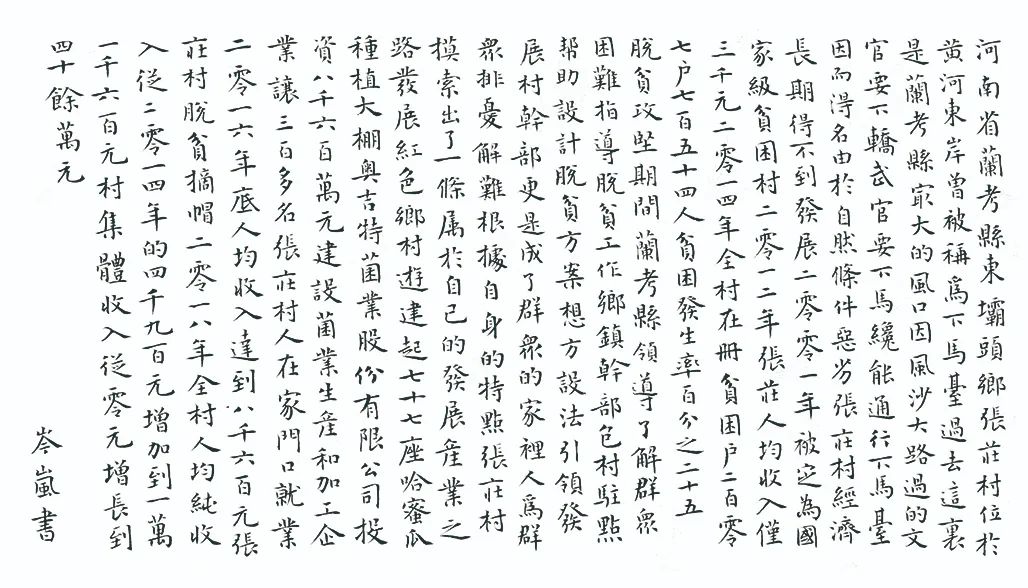 河南省蘭考縣東壩頭鄉張莊村位於
黃河東岸曾被稱爲下馬臺過去這裏
是蘭考縣㝡大的風口因風沙大路過的文
官要下轎武官要下馬纔能通行下馬臺
因而得名由於自然條件惡劣張莊村經濟
長期得不到發展二零零一年被定為國
家級貧困村二零一二年張莊人均收入僅
三千元二零一四年全村在冊貧困户二百零
七户七百五十四人貧困發生率百分之二十五
脫貧攻堅期間蘭考縣領導了解群衆
困難指導脫貧工作鄉鎮幹部包村駐點
幫助設計脫貧方案想方設法引領發
展村幹部更是成了群衆的家裡人爲群
衆排憂解難根據自身的特點張莊村
摸索出了一條属於自己的發展產業之
路發展紅色鄉村遊建起七十七座哈蜜瓜
種植大棚奧吉特菌業股份有限公司投
資八千六百萬元建設菌業生產和加工企
業讓三百多名張莊村人在家門口就業
二零一六年底人均收入達到八千六百元張
莊村脫貧摘帽二零一八年全村人均純收
入從二零一四年的四千九百元增加到一萬
一千六百元村集體收入從零元增長到
四十餘萬元
岑嵐書